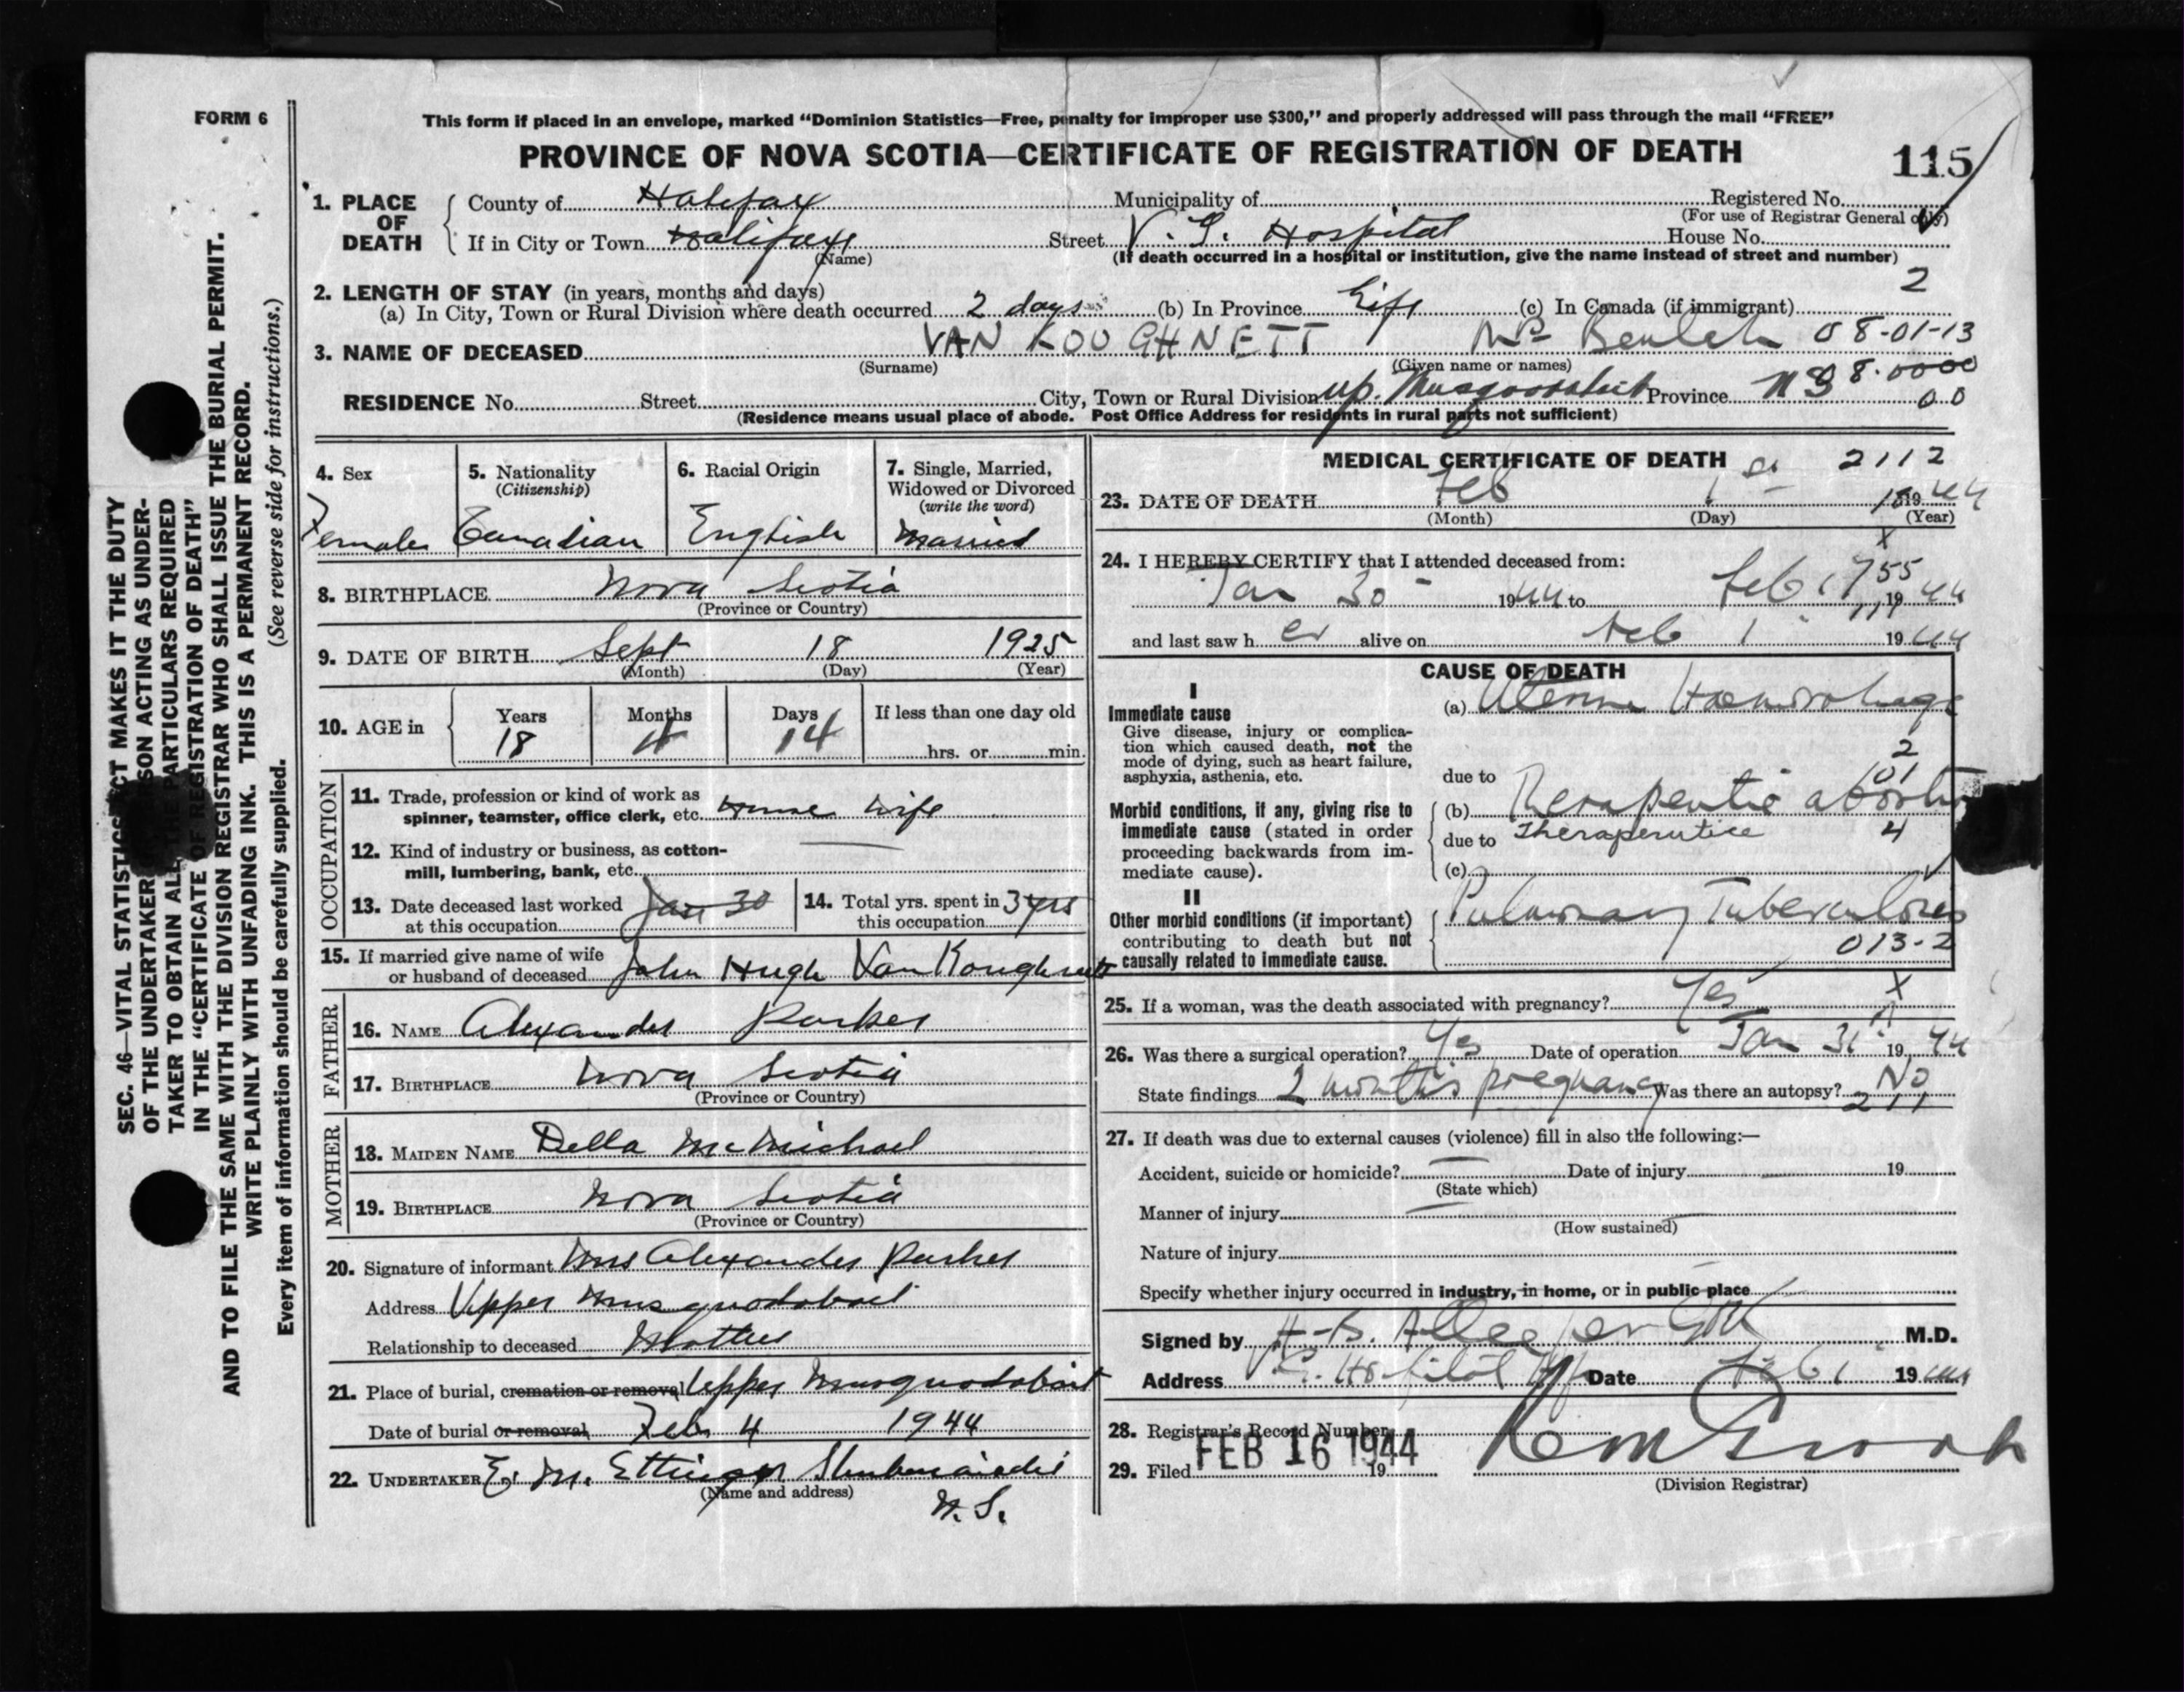 FORM 6
This form if placed in an envelope, marked “Dominion Statistics—Free, penalty for improper use $300,” and properly addressed will pass through the mail “FREE”
PROVINCE OF NOVA SCOTIA—CERTIFICATE OF REGISTRATION OF DEATH
115
1. PLACE OF DEATH
County of Halifax Municipality of Registered No.
(For use of Registrar General only)
If in City or Town Halifax Street V. G. Hospital House No.
(Name) (If death occurred in a hospital or institution, give the name instead of street and number)
2
2. LENGTH OF STAY (in years, months and days)
(a) In City, Town or Rural Division where death occurred 2 days (b) In Province Life (c) In Canada (if immigrant)
3. NAME OF DECEASED VAN KOUGHNETT Mrs Beulah 08-01-13
(Surname) (Given name or names)
8.0000
RESIDENCE No. Street City, Town or Rural Division up. Musquodoboit Province N S 00
(Residence means usual place of abode. Post Office Address for residents in rural parts not sufficient)
4. Sex 5. Nationality (Citizenship) 6. Racial Origin 7. Single, Married, Widowed or Divorced (write the word)
Female Canadian English Married
8. BIRTHPLACE Nova Scotia
(Province or Country)
9. DATE OF BIRTH Sept 18 1925
(Month) (Day) (Year)
10. AGE in Years Months Days If less than one day old
18 4 14 hrs. or min.
OCCUPATION
11. Trade, profession or kind of work as
spinner, teamster, office clerk, etc. House wife
12. Kind of industry or business, as cotton-
mill, lumbering, bank, etc.
13. Date deceased last worked at this occupation Jan 30 14. Total yrs. spent in this occupation 3 yrs
15. If married give name of wife
or husband of deceased John Hugh Van Koughnett
FATHER
16. NAME Alexander Parker
17. BIRTHPLACE Nova Scotia
(Province or Country)
MOTHER
18. MAIDEN NAME Della McMichael
19. BIRTHPLACE Nova Scotia
(Province or Country)
20. Signature of informant Mrs Alexander Parker
Address Upper Musquodoboit
Relationship to deceased Mother
21. Place of burial, cremation or removal Upper Musquodoboit
Date of burial or removal Feb 4 1944
22. UNDERTAKER E. M. Ettinger Shubenacadie
(Name and address)
N. S.
MEDICAL CERTIFICATE OF DEATH 2112
23. DATE OF DEATH Feb 1st 1944
(Month) (Day) (Year)
X
24. I HEREBY CERTIFY that I attended deceased from:
755
Jan 30 1944 to Feb 1 1944
and last saw her alive on Feb 1 1944
CAUSE OF DEATH
I
Immediate cause
Give disease, injury or complica-
tion which caused death, not the
mode of dying, such as heart failure,
asphyxia, asthenia, etc.
(a) Uterine Haemorrhage
2
101
due to
Morbid conditions, if any, giving rise to
immediate cause (stated in order
proceeding backwards from im-
mediate cause).
(b) Therapeutic abortion
due to Therapeutice 4
(c)
II
Other morbid conditions (if important)
contributing to death but not
causally related to immediate cause.
Pulmonary Tuberculosis
013-2
25. If a woman, was the death associated with pregnancy? Yes X
26. Was there a surgical operation? Yes Date of operation Jan 31 1944
State findings 2 months pregnancy Was there an autopsy? No
211
27. If death was due to external causes (violence) fill in also the following:—
Accident, suicide or homicide? Date of injury 19
(State which)
Manner of injury
(How sustained)
Nature of injury
Specify whether injury occurred in industry, in home, or in public place
Signed by H. B. M.D.
Address V. G. Hospital Date Feb 1 1944
28. Registrar's Record Number
29. Filed FEB 16 1944 19
(Division Registrar)
SEC. 46—VITAL STATISTICS ACT MAKES IT THE DUTY
OF THE UNDERTAKER PERSON ACTING AS UNDER-
TAKER TO OBTAIN ALL THE PARTICULARS REQUIRED
IN THE “CERTIFICATE OF REGISTRATION OF DEATH”
AND TO FILE THE SAME WITH THE DIVISION REGISTRAR WHO SHALL ISSUE THE BURIAL PERMIT.
WRITE PLAINLY WITH UNFADING INK. THIS IS A PERMANENT RECORD.
Every item of information should be carefully supplied. (See reverse side for instructions.)